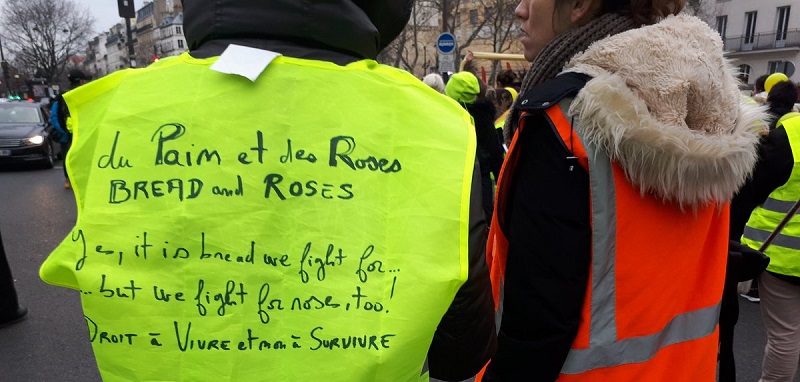 du Paim et des Roses
BREAD and ROSES
Yes, it is bread we fight for...
...but we fight for roses, too!
DROIT à VIVRE et mon à SURVIVRE